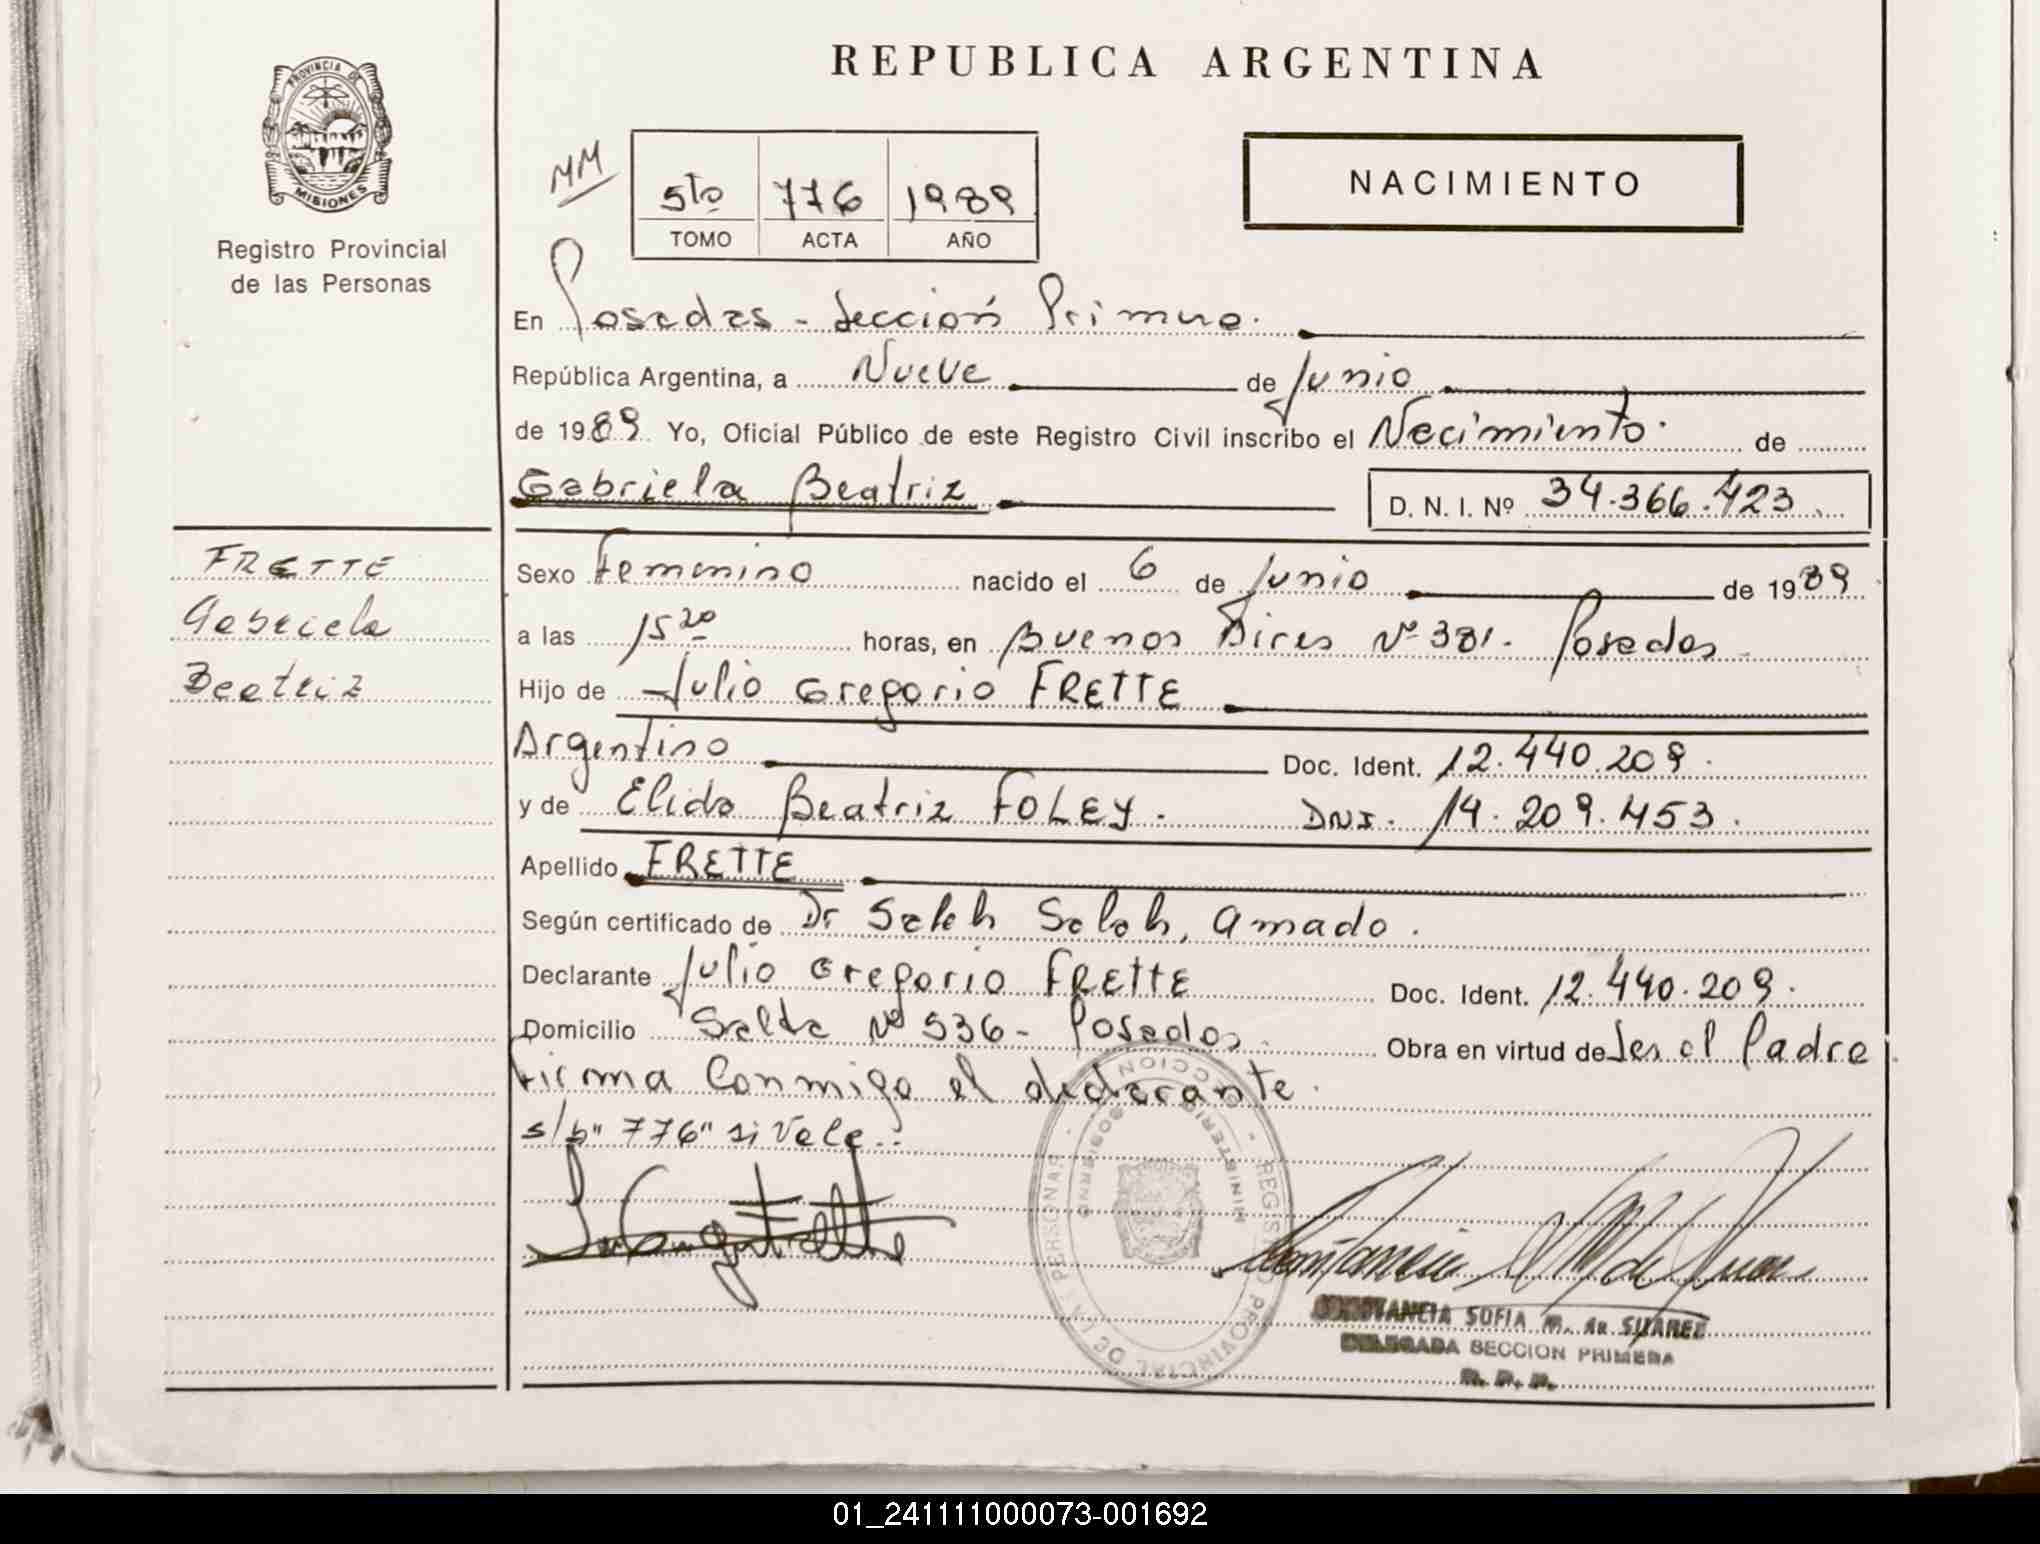 PROVINCIA DE
MISIONES
Registro Provincial
de las Personas
REPUBLICA ARGENTINA
MM
5to 776 1989
TOMO ACTA AÑO
NACIMIENTO
En Posadas - Sección Primera.
República Argentina, a Nueve de Junio
de 1989 Yo, Oficial Público de este Registro Civil inscribo el Nacimiento. de
Gabriela Beatriz D. N. I. Nº 34.366.423
FRETTE
Gabriela
Beatriz
Sexo Femenino nacido el 6 de Junio de 1989
a las 15 20 horas, en Buenos Aires Nº 381. Posadas
Hijo de Julio Gregorio FRETTE
Argentino Doc. Ident. 12.440.209.
y de Elida Beatriz FOLEY. DNI. 14.209.453.
Apellido FRETTE
Según certificado de Dr Saleh Saleh, Amado.
Declarante Julio Gregorio FRETTE Doc. Ident. 12.440.209.
Domicilio Salta Nº 536 - Posadas. Obra en virtud de Ser el Padre
Firma Conmigo el declarante.
s/b "776" si Vale..
REGISTRO PROVINCIAL DE LAS PERSONAS - SECCION
MINISTERIO GOBIERNO
CONSTANCIA SOFIA M. de SUAREZ
DELEGADA SECCION PRIMERA
R. P. P.
01_241111000073-001692